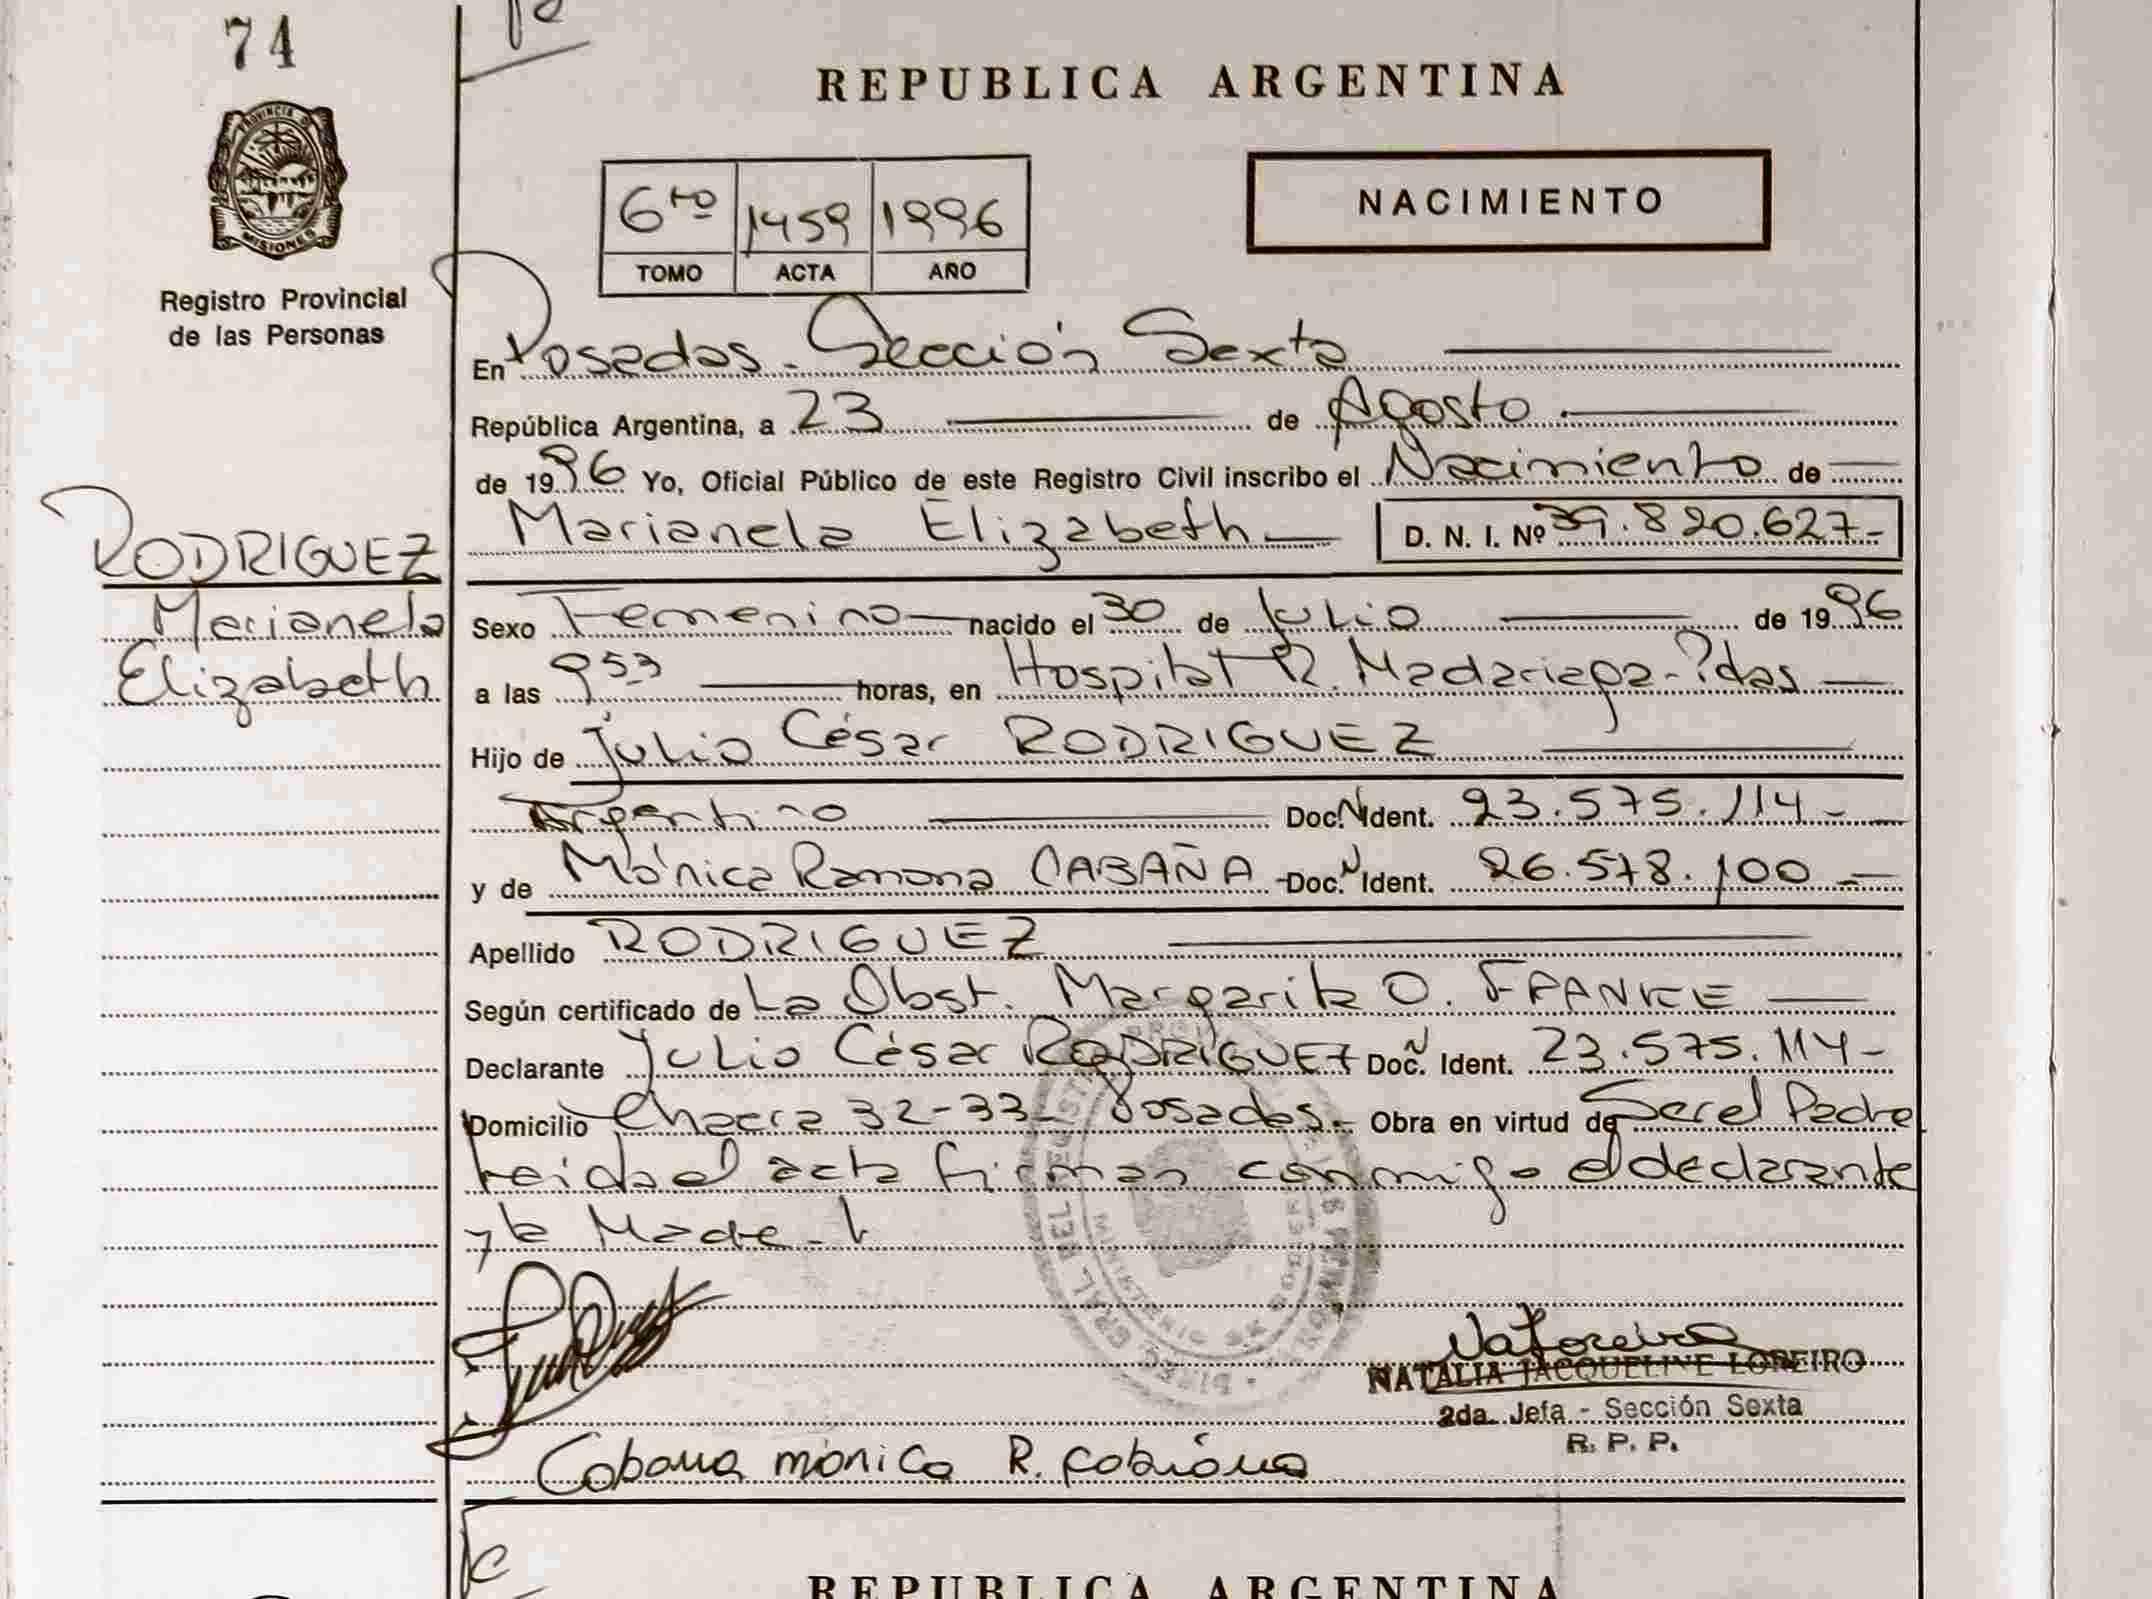 74
PROVINCIA DE
MISIONES
Registro Provincial
de las Personas
REPUBLICA ARGENTINA
6to 1459 1996
TOMO ACTA AÑO
NACIMIENTO
En Posadas - Sección Sexta
República Argentina, a 23 de Agosto
de 1996 Yo, Oficial Público de este Registro Civil inscribo el Nacimiento de
Marianela Elizabeth D. N. I. Nº 39.820.627-
RODRIGUEZ
Marianela
Elizabeth
Sexo Femenino nacido el 30 de Julio de 1996
a las 9 53 horas, en Hospital R. Madariaga - Pdas
Hijo de Julio César RODRIGUEZ
Argentino Doc. N Ident. 23.575.114-
y de Mónica Ramona CABAÑA - Doc. N Ident. 26.578.100
Apellido RODRIGUEZ
Según certificado de La Obst. Margarita O. FRANKE
Declarante Julio César RODRIGUEZ Doc. N Ident. 23.575.114-
Domicilio Chacra 32-33 - Posadas. Obra en virtud de Ser el Padre
Leida el acta firman conmigo el declarante
y la Madre
NATALIA JACQUELINE LOREIRO
2da. Jefa - Sección Sexta
R. P. P.
Cabana mónica R.
REPUBLICA ARGENTINA